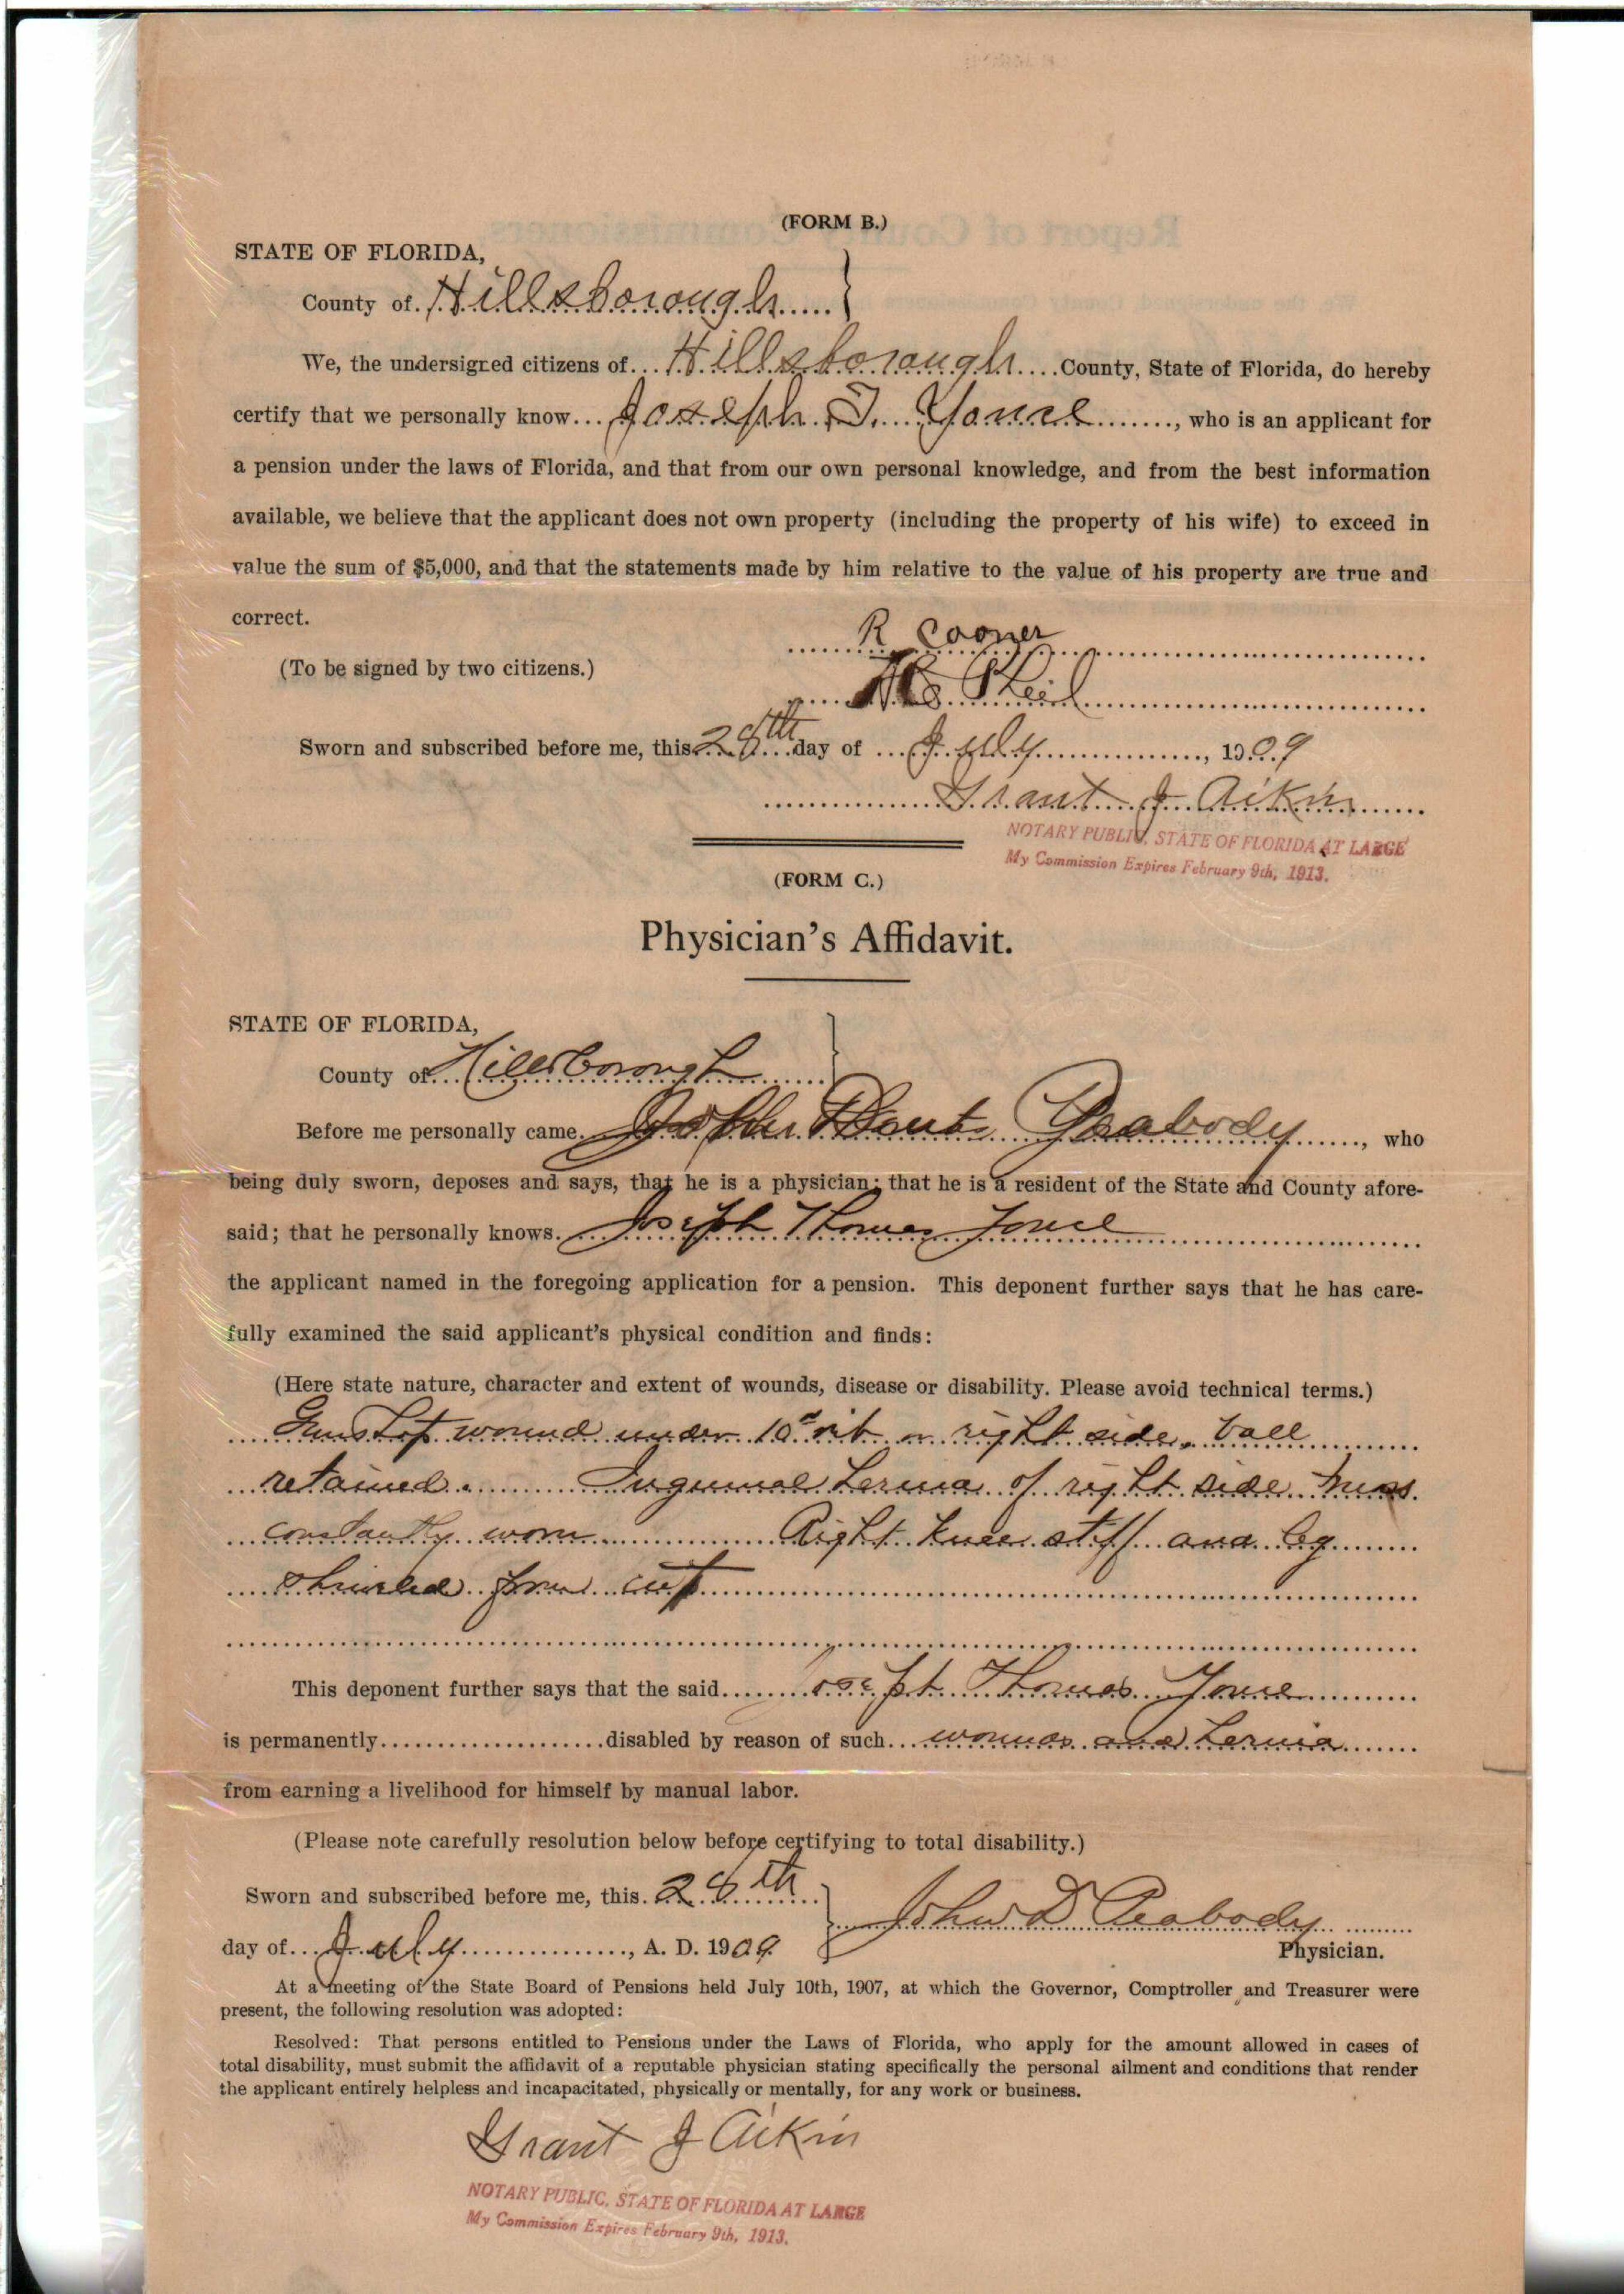 (FORM B.)
STATE OF FLORIDA,
County of Hillsborough
We, the undersigned citizens of Hillsborough County, State of Florida, do hereby
certify that we personally know Joseph T. Yonce, who is an applicant for
a pension under the laws of Florida, and that from our own personal knowledge, and from the best information
available, we believe that the applicant does not own property (including the property of his wife) to exceed in
value the sum of $5,000, and that the statements made by him relative to the value of his property are true and
correct.
R Cooner
(To be signed by two citizens.)
Sworn and subscribed before me, this 28th day of July, 1909
Grant J Aikin
NOTARY PUBLIC, STATE OF FLORIDA AT LARGE
My Commission Expires February 9th, 1913.
(FORM C.)
Physician's Affidavit.
STATE OF FLORIDA,
County of Hillsborough
Before me personally came John Peabody, who
being duly sworn, deposes and says, that he is a physician; that he is a resident of the State and County afore-
said; that he personally knows Joseph Thomas Yonce
the applicant named in the foregoing application for a pension. This deponent further says that he has care-
fully examined the said applicant's physical condition and finds:
(Here state nature, character and extent of wounds, disease or disability. Please avoid technical terms.)
Gunshot wound under 10th rib on right side, ball
retained. Inguinal hernia of right side truss
constantly worn Right knee stiff and leg
from cut
This deponent further says that the said Joseph Thomas Yonce
is permanently disabled by reason of such wounds and hernia
from earning a livelihood for himself by manual labor.
(Please note carefully resolution below before certifying to total disability.)
Sworn and subscribed before me, this 28th
John D Peabody
day of July, A. D. 1909
Physician.
At a meeting of the State Board of Pensions held July 10th, 1907, at which the Governor, Comptroller and Treasurer were
present, the following resolution was adopted:
Resolved: That persons entitled to Pensions under the Laws of Florida, who apply for the amount allowed in cases of
total disability, must submit the affidavit of a reputable physician stating specifically the personal ailment and conditions that render
the applicant entirely helpless and incapacitated, physically or mentally, for any work or business.
Grant J Aikin
NOTARY PUBLIC, STATE OF FLORIDA AT LARGE
My Commission Expires February 9th, 1913.